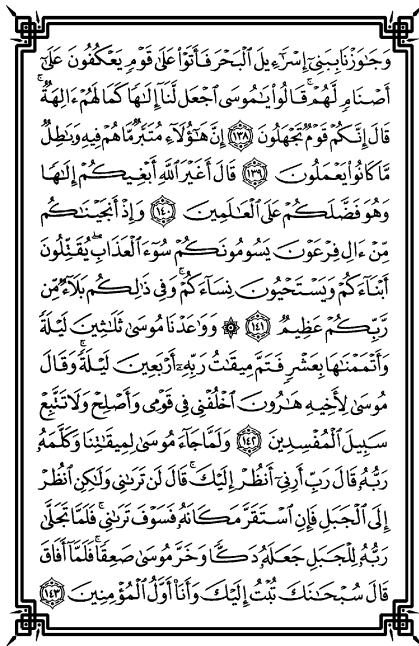 وَجَٰوَزْنَا بِبَنِىٓ إِسْرَٰٓءِيلَ ٱلْبَحْرَ فَأَتَوْا۟ عَلَىٰ قَوْمٍ يَعْكُفُونَ عَلَىٰٓ
أَصْنَامٍ لَّهُمْ ۚ قَالُوا۟ يَٰمُوسَى ٱجْعَل لَّنَآ إِلَٰهًا كَمَا لَهُمْ ءَالِهَةٌ ۚ
قَالَ إِنَّكُمْ قَوْمٌ تَجْهَلُونَ ١٣٨ إِنَّ هَٰٓؤُلَآءِ مُتَبَّرٌ مَّا هُمْ فِيهِ وَبَٰطِلٌ
مَّا كَانُوا۟ يَعْمَلُونَ ١٣٩ قَالَ أَغَيْرَ ٱللَّهِ أَبْغِيكُمْ إِلَٰهًا
وَهُوَ فَضَّلَكُمْ عَلَى ٱلْعَٰلَمِينَ ١٤٠ وَإِذْ أَنجَيْنَٰكُم
مِّنْ ءَالِ فِرْعَوْنَ يَسُومُونَكُمْ سُوٓءَ ٱلْعَذَابِ ۖ يُقَتِّلُونَ
أَبْنَآءَكُمْ وَيَسْتَحْيُونَ نِسَآءَكُمْ ۚ وَفِى ذَٰلِكُم بَلَآءٌ مِّن
رَّبِّكُمْ عَظِيمٌ ١٤١ ۞ وَوَٰعَدْنَا مُوسَىٰ ثَلَٰثِينَ لَيْلَةً
وَأَتْمَمْنَٰهَا بِعَشْرٍ فَتَمَّ مِيقَٰتُ رَبِّهِۦٓ أَرْبَعِينَ لَيْلَةً ۚ وَقَالَ
مُوسَىٰ لِأَخِيهِ هَٰرُونَ ٱخْلُفْنِى فِى قَوْمِى وَأَصْلِحْ وَلَا تَتَّبِعْ
سَبِيلَ ٱلْمُفْسِدِينَ ١٤٢ وَلَمَّا جَآءَ مُوسَىٰ لِمِيقَٰتِنَا وَكَلَّمَهُۥ
رَبُّهُۥ قَالَ رَبِّ أَرِنِىٓ أَنظُرْ إِلَيْكَ ۚ قَالَ لَن تَرَىٰنِى وَلَٰكِنِ ٱنظُرْ
إِلَى ٱلْجَبَلِ فَإِنِ ٱسْتَقَرَّ مَكَانَهُۥ فَسَوْفَ تَرَىٰنِى ۚ فَلَمَّا تَجَلَّىٰ
رَبُّهُۥ لِلْجَبَلِ جَعَلَهُۥ دَكًّا وَخَرَّ مُوسَىٰ صَعِقًا ۚ فَلَمَّآ أَفَاقَ
قَالَ سُبْحَٰنَكَ تُبْتُ إِلَيْكَ وَأَنَا۠ أَوَّلُ ٱلْمُؤْمِنِينَ ١٤٣